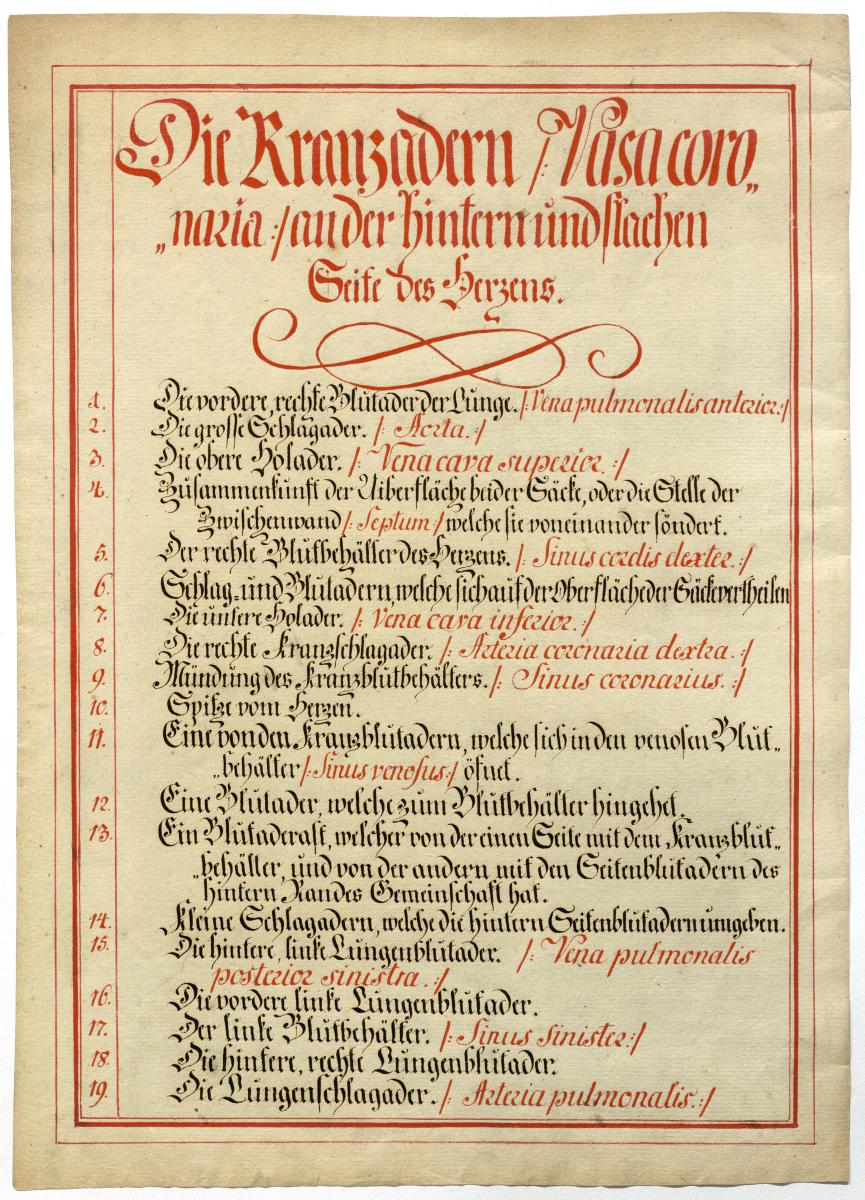 Die Kranzadern /: Vasa coro„
„naria :/ an der hintern und flachen
Seite des Herzens.
1. Die vordere, rechte Blutader der Lunge. /: Vena pulmonalis anterior :/
2. Die grosse Schlagader. /: Aorta. :/
3. Die obere Holader. /: Vena cava superior. :/
4. Zusammenkunft der Uiberfläche beider Säcke, oder die Stelle der
Zwischenwand /: Septum :/ welche sie voneinander söndert.
5. Der rechte Blutbehälter des Herzens. /: Sinus cordis dexter. :/
6. Schlag- und Blutadern, welche sich auf der Oberfläche der Säcke vertheilen
7. Die untere Holader. /: Vena cava inferior. :/
8. Die rechte Kranzschlagader. /: Arteria coronaria dextra. :/
9. Mündung des Kranzblutbehälters. /: Sinus coronarius. :/
10. Spitze vom Herzen.
11. Eine von den Kranzblutadern, welche sich in den venosen Blut„
„behälter /: Sinus venosus :/ öfnet.
12. Eine Blutader, welche zum Blutbehälter hingehet.
13. Ein Blutaderast, welcher von der einen Seite mit dem Kranzblut„
„behälter, und von der andern mit den Seitenblutadern des
hintern Randes Gemeinschaft hat.
14. Kleine Schlagadern, welche die hintern Seitenblutadern umgeben.
15. Die hintere, linke Lungenblutader. /: Vena pulmonalis
posterior sinistra. :/
16. Die vordere linke Lungenblutader.
17. Der linke Blutbehälter. /: Sinus sinister :/
18. Die hintere, rechte Lungenblutader.
19. Die Lungenschlagader. /: Arteria pulmonalis. :/